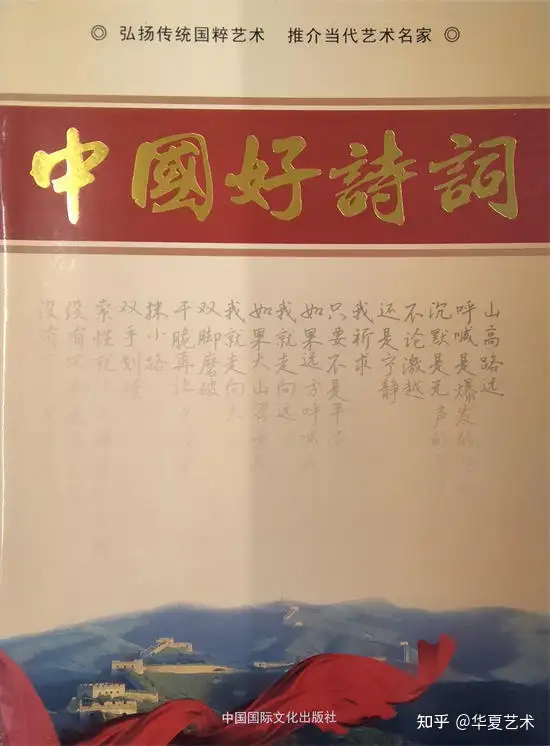 ◎ 弘扬传统国粹艺术 推介当代艺术名家 ◎
中國好詩詞
山高路远
呼喊是爆发的
沉默是无声的
不论激越
还是宁静
我祈求
只要不是平
如果远方呼喊
我就走向远
如果大山召
我就走向大
双脚磨破
干脆再让
抹小路
双手划
索性就
没有比
没有
中国国际文化出版社
知乎 @华夏艺术